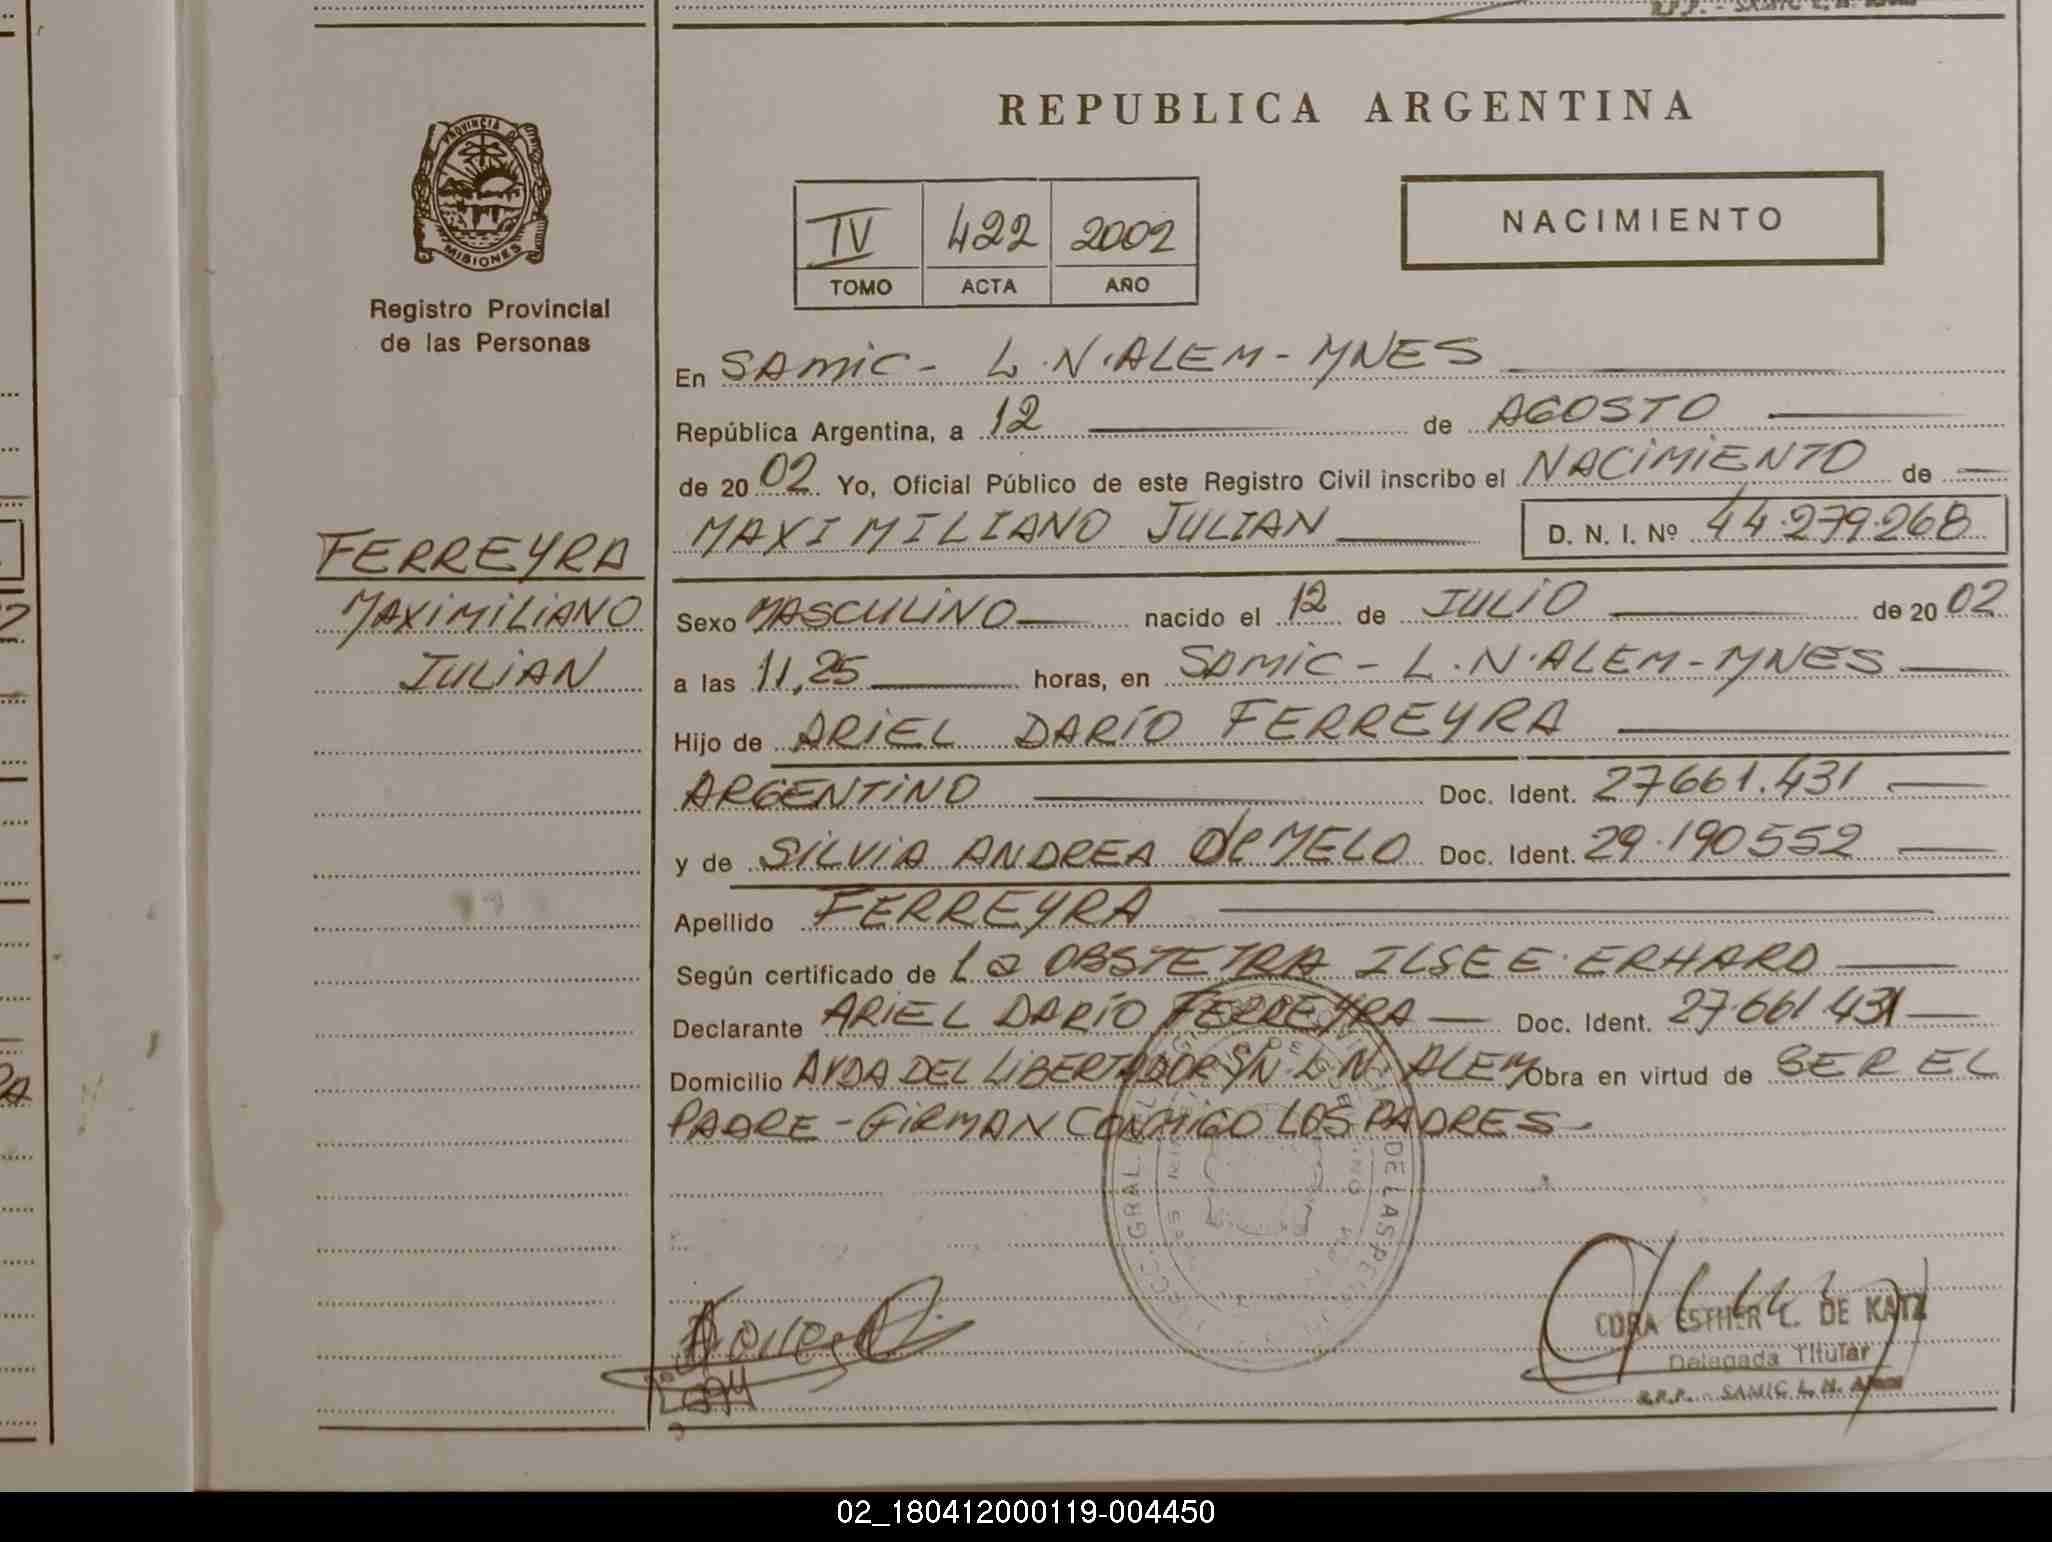 REPUBLICA ARGENTINA
PROVINCIA DE
MISIONES
Registro Provincial
de las Personas
IV 422 2002
TOMO ACTA AÑO
NACIMIENTO
En SAMIC - L.N.ALEM - MNES
República Argentina, a 12 de AGOSTO
de 2002 Yo, Oficial Público de este Registro Civil inscribo el NACIMIENTO de
MAXIMILIANO JULIAN D. N. I. Nº 44.279.268
FERREYRA
MAXIMILIANO
JULIAN
Sexo MASCULINO nacido el 12 de JULIO de 2002
a las 11,25 horas, en SAMIC - L.N.ALEM - MNES
Hijo de ARIEL DARÍO FERREYRA
ARGENTINO Doc. Ident. 27661.431
y de SILVIA ANDREA de MELO Doc. Ident. 29.190552
Apellido FERREYRA
Según certificado de La OBSTETRA ILSE E. ERHARD
Declarante ARIEL DARÍO FERREYRA Doc. Ident. 27.661431
Domicilio AVDA DEL LIBERTADOR S/N L.N. ALEM Obra en virtud de SER EL
PADRE - FIRMAN CONMIGO LOS PADRES -
DE LAS
GRAL.
CORA ESTHER L. DE KATZ
Delegada Titular
R.P.P. - SAMIC L. N. ALEM
02_180412000119-004450